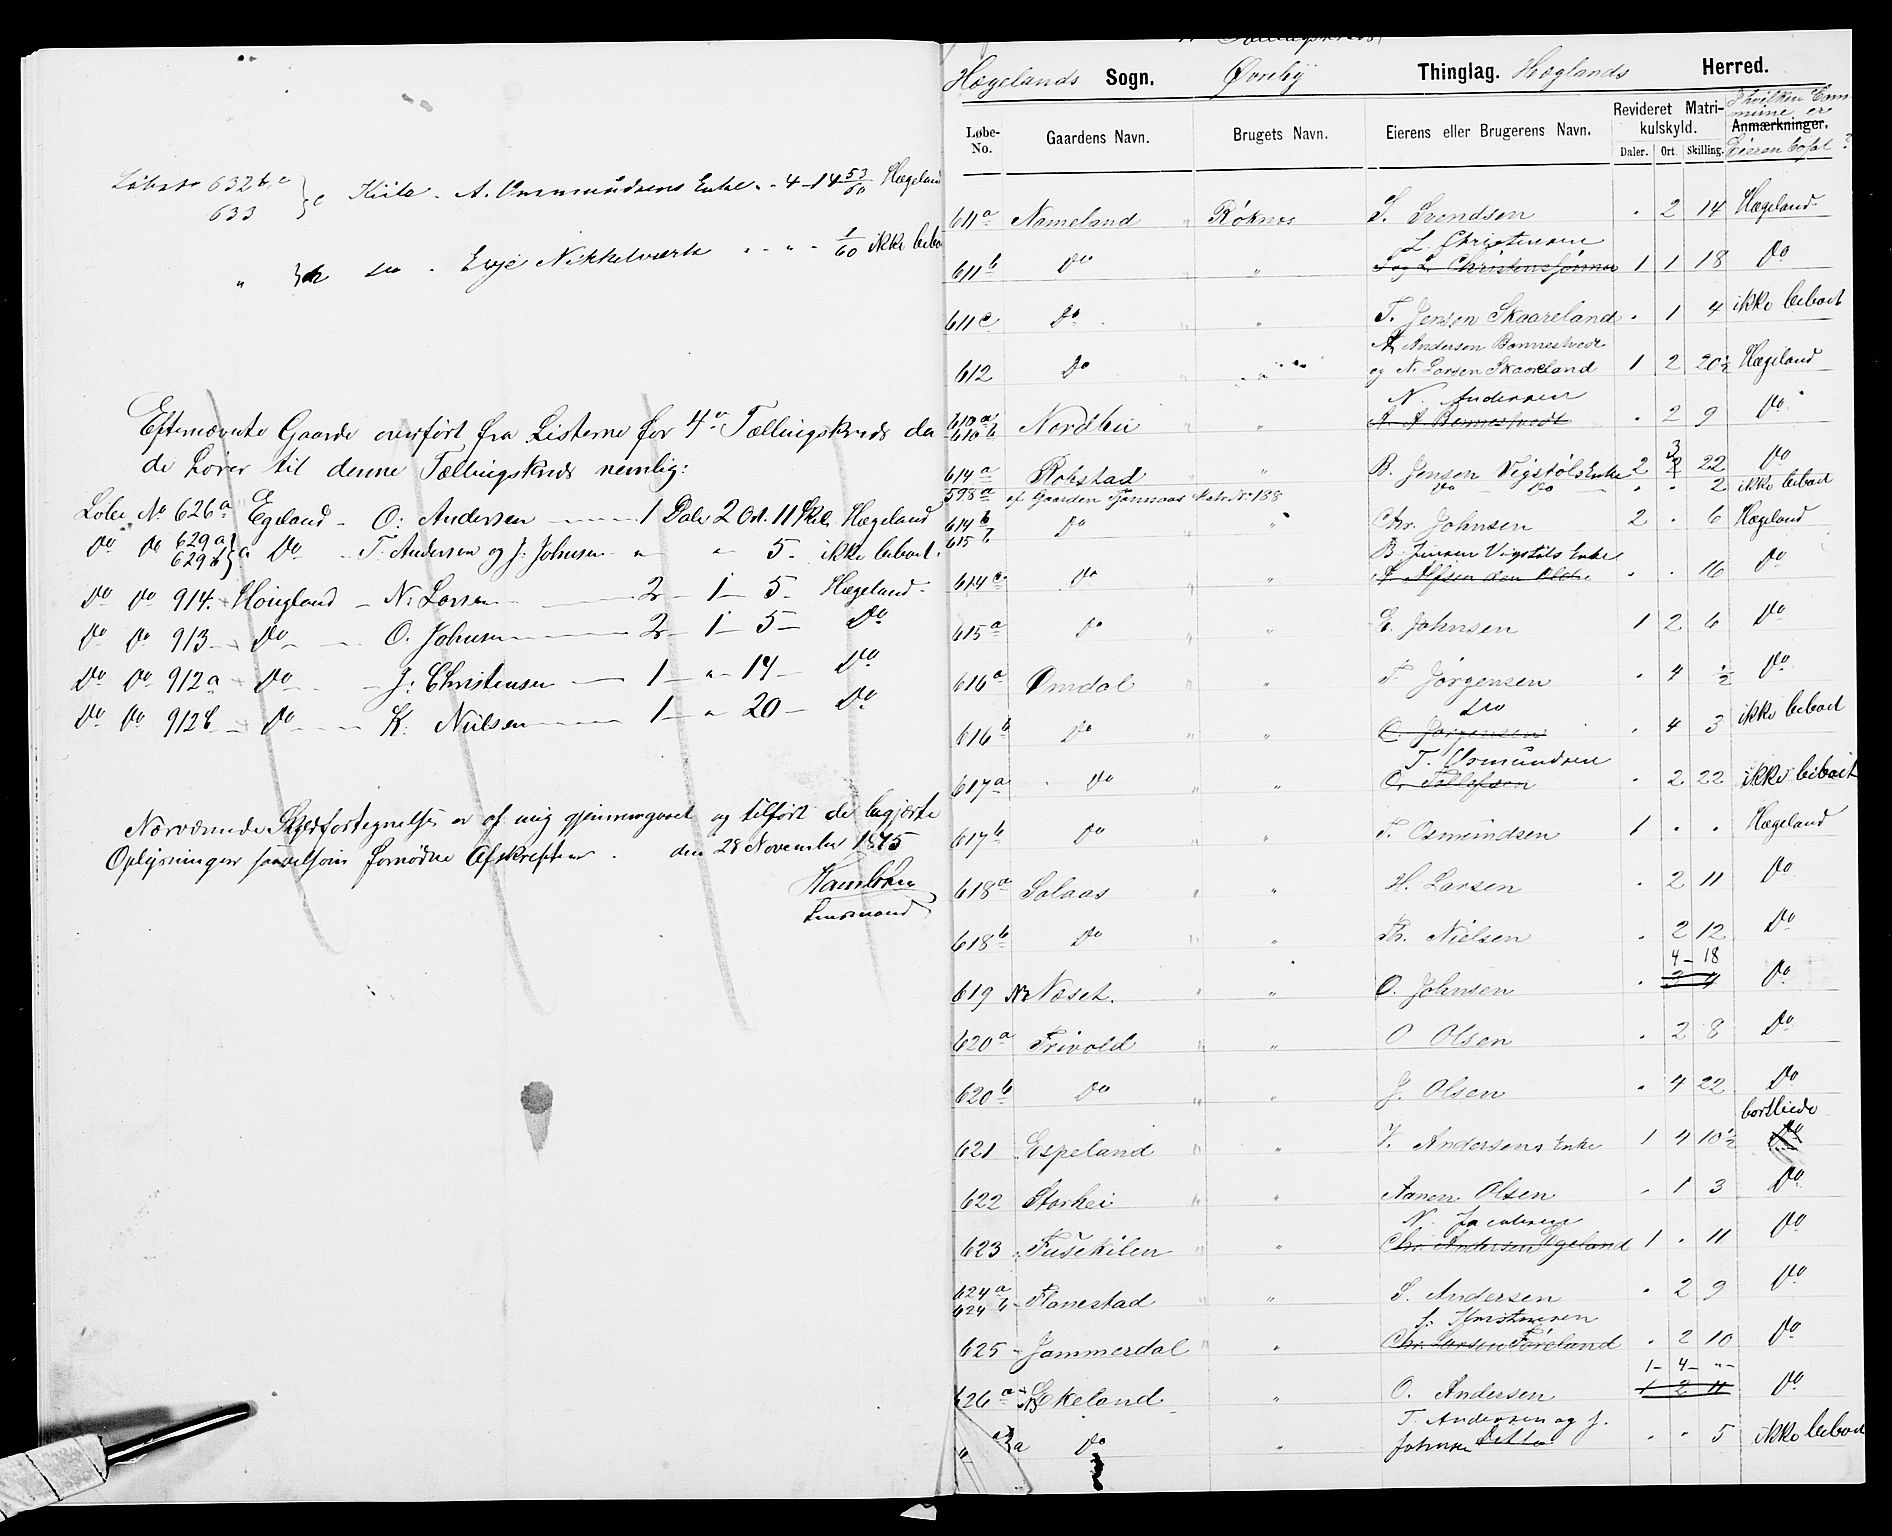 Løbeno 632 b, c } c Kile - A. Osmundsens Enke " 4 - 14 53/60 Hægeland
633
" do - Evje Nikkelværk " - " - 1/60 ikke bebo
Efternævnte Gaarde overført fra Listerne for 4de Tællingskreds da
de hører til denne Tællingskreds nemlig:
Løbe No 626a Egeland - O. Andersen 1 Daler 2 Ort. 11 Skil. Hægeland
Do Do 629a 629b } a Do - T. Andersen og J. Johnsen " " 5 - ikke beboet.
Do Do 914. Hougland - N. Larsen 2 - 1 - 5 - Hægeland -
Do Do 913 - Do - O. Johnsen 2 - 1 - 5 - Do
Do Do 912a - Do - J. Christensen 1 - " - 14 - Do
Do Do 912b - Do - K. Nielsen 1 - " - 20 - Do
Nærværende Skyldfortegnelse er af mig gjennemgaaet og tilført de begjærte
Oplysninger saavelsom fornødne Afskrifter. den 28 November 1875
Lensmand
Hægelands Sogn. Øvreby Thinglag. Hæglands Herred.
Løbe-No. Gaardens Navn. Brugets Navn. Eierens eller Brugerens Navn. Revideret Matrikulskyld. Daler. Ort. Skilling. Anmærkninger. I hvilken Commune er Eieren bosat?
611a Nameland " Røknes S. Svendsen . 2 14 Hægeland
L. Christensen
611b Do " T og L. Christenssønner 1 1 18 Do
611c Do " " T. Jensen Skaareland . 1 4 ikke beboet
A. Andersen Bonnestvedt
612 Do " " og N. Larsen Skaareland 1 2 20½ Hægeland
N. Andersen
610a 610b Nordhei " " A A Bonnestvedt . 2 9 Do
614a Rokstad " B. Jensen Vigstøls Enke 2 3 2 22 Do
598a af Gaarden Tønnaas Matr. No 188 Do Do " " 2 ikke beboet
614b 615b Do " Chr. Johnsen 2 . 6 Hægeland
B. Jensen Vigstøls Enke
614c Do " " Alfsen den Ældre . . 16 Do
615a Do " " E. Johnsen 1 2 6 Do
616a Omdal " " T. Jørgensen . 4 ½ Do
do
616b Do " " O. Jørgensen . 4 3 ikke beboet
T. Osmundsen
617a Do " " O. Tollefsen . 2 22 ikke beboet
617b Do " " T. Osmundsen 1 . . Hægeland
618a Solaas " " H. Larsen . 2 11 Do
618b Do " " Th. Nielsen . 2 12 Do
4 - 18
619 Næset. " " O. Johnsen . Do
620a Trivold " " O Olsen . 2 8 Do
620b Do " " J. Olsen . 4 22 Do
621 Espeland " " Andersens Enke 1 4 10½ bortleiet Do
622 Storhei " " Aanen Olsen . 1 3 Do
N. Jacobsen
623 Fusekilen " " Chr. Andersen Egeland 1 . 11 Do
624a 624b Flanestad " " S. Andersen . 2 9 Do
Christensen
625 - Jammerdal " " Chr. Larsen Føreland . 2 10 Do
1 - 4 - " -
626a Ekeland " O. Andersen 1 2 11 Do
T. Andersen og J.
" a Do " Johnsen Ditto . . 5 ikke beboet